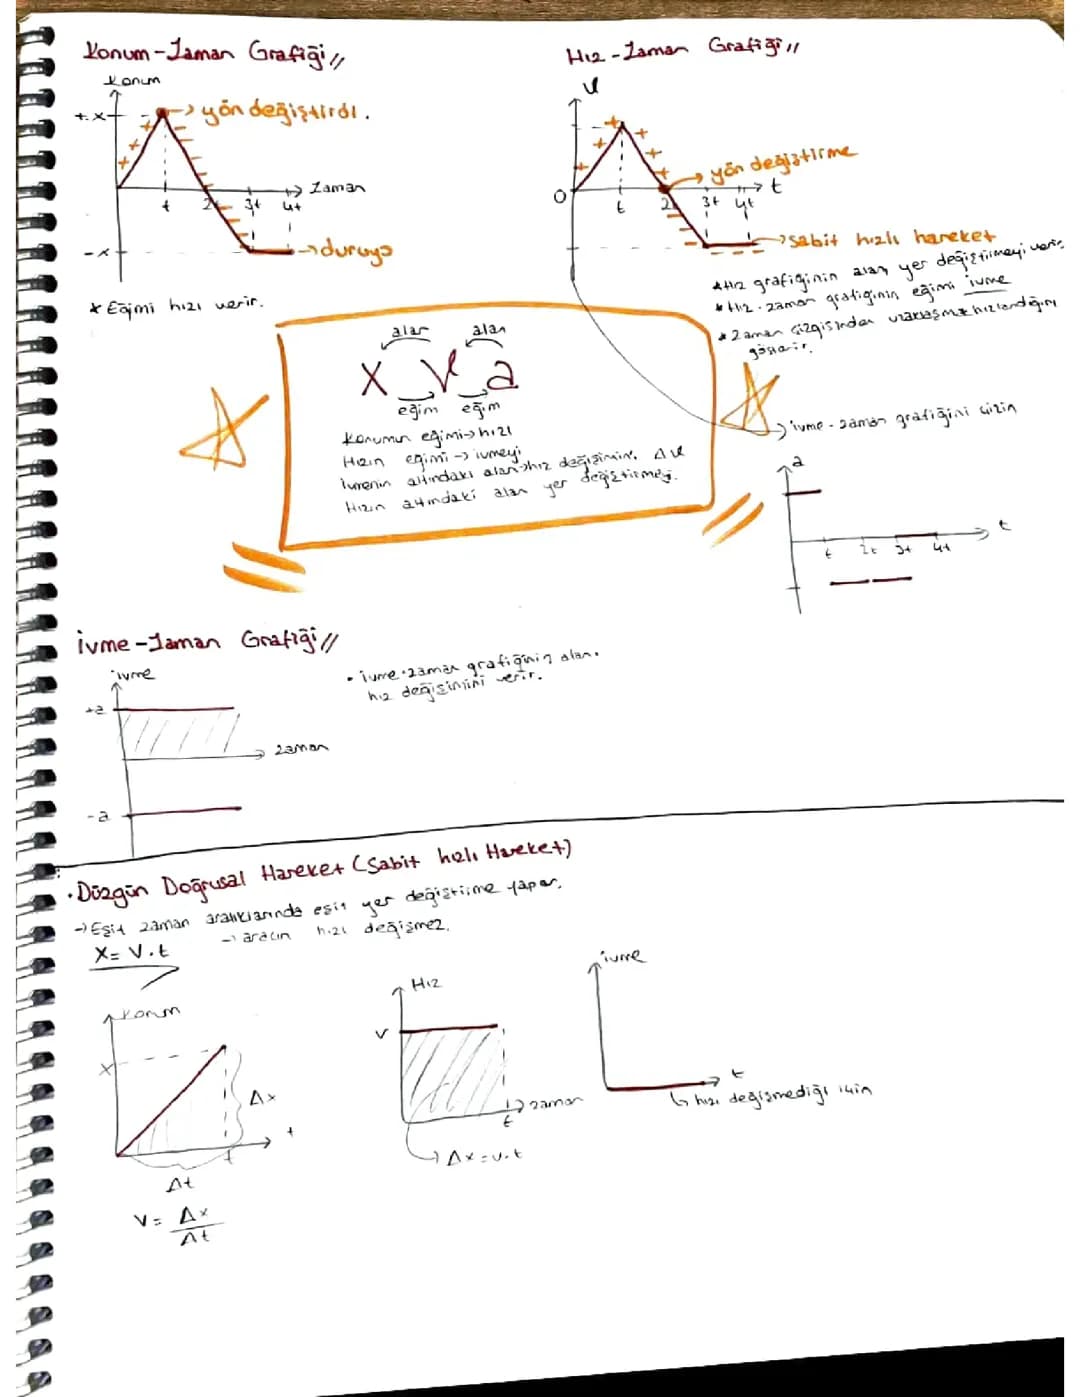 Konum-Zaman Grafiği //
Konum
+x
→ yön değiştirdi.
t 2t 3t 4t
Zaman
-x
→ duruyo
* Eğimi hızı verir.
Hız-Zaman Grafiği //
V
→ yön değiştirme
0
t 2t 3t 4t
t
→ sabit hızlı hareket
* Hız grafiğinin alanı yer değiştirmeyi verir
* Hız-zaman grafiğinin eğimi ivme
* Zaman çizgisinden uzaklaşma hızlandığını
gösterir.
alan alan
X V a
eğim eğim
Konumun eğimi → hızı
Hızın eğimi → ivmeyi
İvmenin altındaki alan → hız değişimini. ΔV
Hızın altındaki alan yer değiştirmeyi.
→ ivme-zaman grafiğini çizin
a
t
t 2t 3t 4t
İvme-Zaman Grafiği //
ivme
+a
zaman
-a
• İvme-zaman grafiğinin alanı
hız değişimini verir.
• Düzgün Doğrusal Hareket (Sabit hızlı Hareket)
→ Eşit zaman aralıklarında eşit yer değiştirme yapar.
→ aracın hızı değişmez.
X = V.t
Konum
x
Δx
t
t
Δt
V = Δx
Δt
Hız
V
zaman
t
→ Δx = v.t
ivme
t
↳ hızı değişmediği için